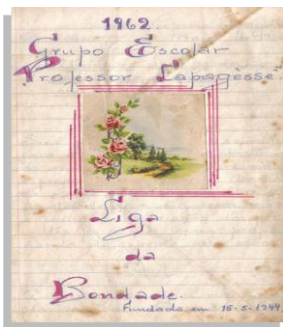 1962.
Grupo Escolar
Professor Lapagèsse.
Liga
da
Bondade.
Fundada em 15-5-1944